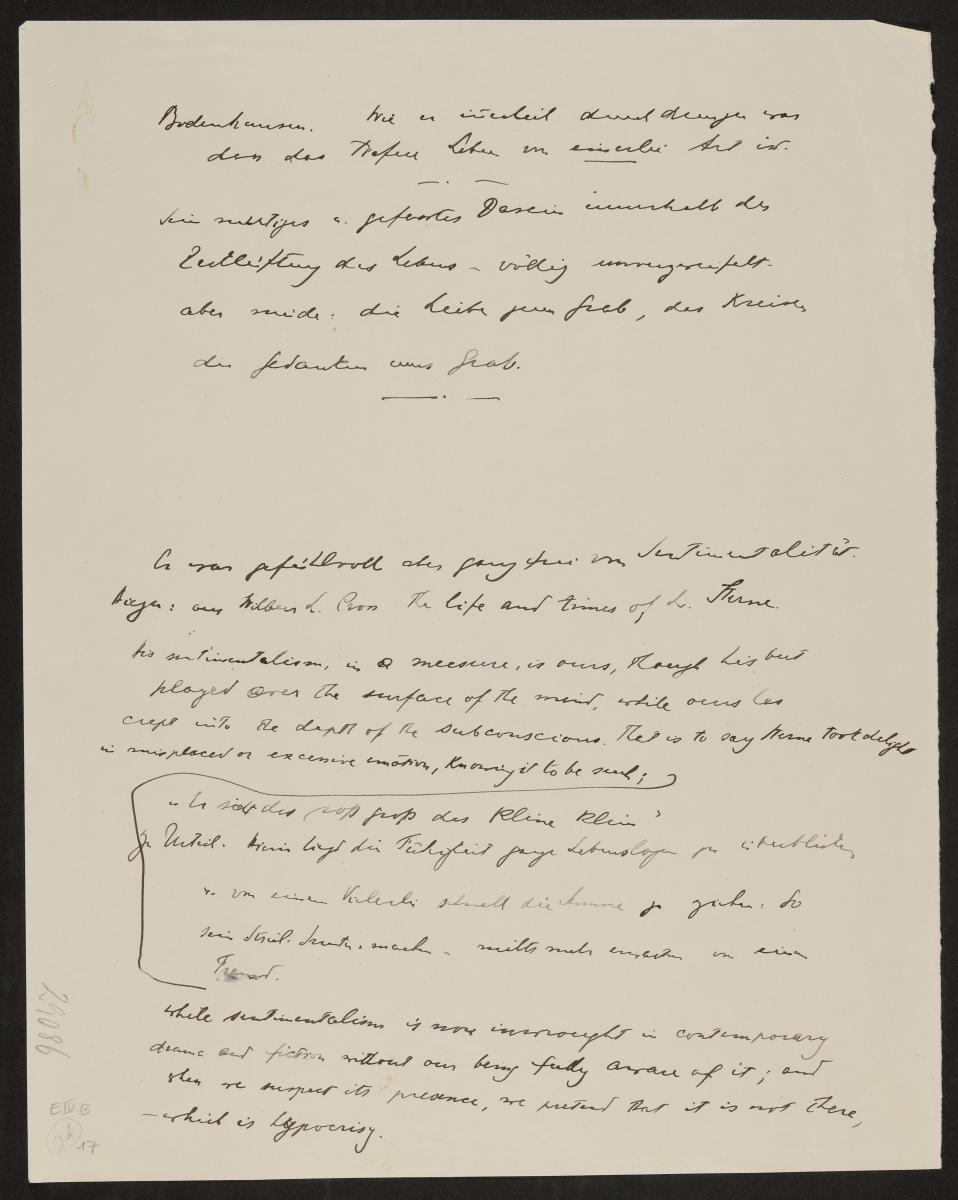 Bodenhausen. Wie er innerlich durchdrungen war
dass das Tiefere Leben von einerlei Art ist.
Sein u. Dasein innerhalb der
des Lebens – völlig
aber müde: die Liebe zum Grab, das Kreisen
der Gedanken ums Grab.
Er war gefühlvoll aber ganz frei von Sentimentalität.
Hiezu: aus Wilbur L. Cross The life and times of L. Sterne.
His sentimentalism, in a measure, is ours, though his but
played over the surface of the mind, while ours has
crept into the depth of the subconscious. That is to say Sterne took delight
in misplaced or excessive emotion, knowing it to be such;
„Er sieht das groß das Kleine klein"
zu Urteil. Hierin liegt die Fähigkeit ganze Lebenslagen zu überblicken
u. von einem Vielerlei schnell die Summe zu ziehen: So
sein machen – nichts mehr von einem
Freund.
while sentimentalism is now inwrought in contemporary
drama and fiction without our being fully aware of it; and
when we suspect its presence, we pretend that it is not there,
– which is hypocrisy.
29086
E IV B
17